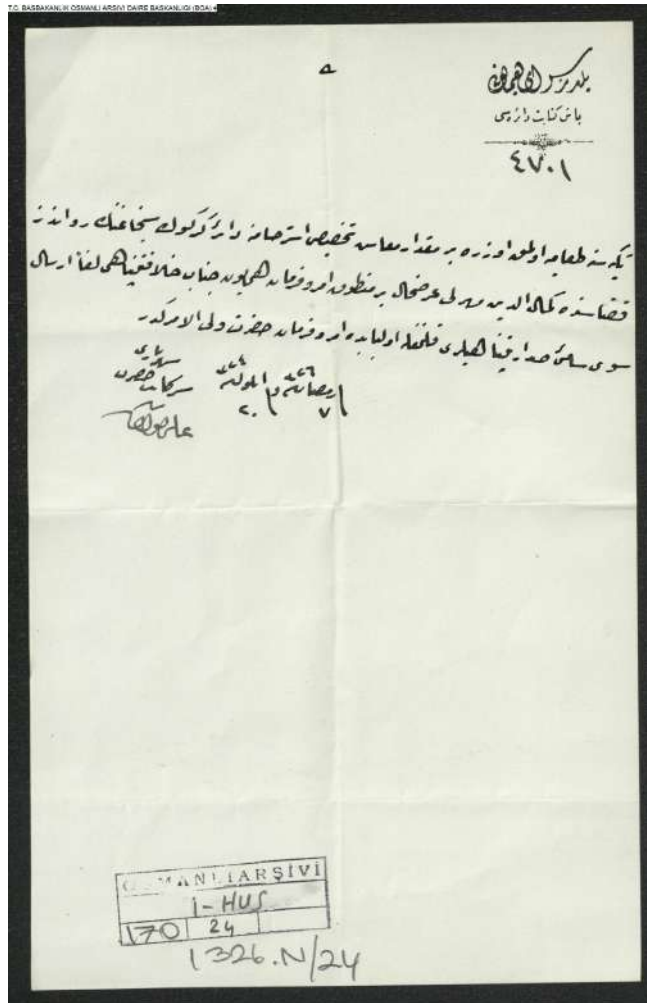 T.C. BAŞBAKANLIK OSMANLI ARŞİVİ DAİRE BAŞKANLIĞI (BOA)
يلديز سراى همايونى
باش كتابت دائره سى
٤٧٠١
تكيه سنه طعاميه اولمق اوزره بر مقدار معاش تخصيصى استرحامنه دائر كركوك سنجاغنك رواندز
قضاسنده كمال الدين مهرلى عرضحال بر منطوق امر و فرمان همايون جناب خلافتپناهى لفاً ارسال
سوى سامئ صدارتپناهيلرى قلنمغله اولبابده امر و فرمان حضرت ولى الامركدر
٧ رمضان ٣٢٦ و ٢٠ ايلول ٣٢٤
سركاتب حضرت شهريارى
على جواد
OSMANLI ARŞİVİ
İ-HUS
170 24
1326.N/24